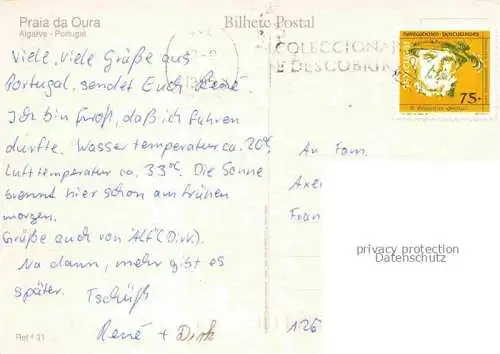 Praia da Oura
Algarve - Portugal
Bilhete Postal
COLECCIONA
E DESCOBRI
NAVEGADORES PORTUGUESES
75.-
Viele, viele Grüße aus
Portugal, sendet Euch René.
Ich bin froh, daß ich fahren
durfte. Wassertemperatur ca. 20°C
Lufttemperatur ca. 33°C. Die Sonne
brennt hier schon am frühen
morgen.
Grüße auch von "Alf" (D.W.).
Na dann, mehr gibt es
später.
Tschüß
René + Dirk
Ref.ª 31
An Fam.
Axe
Fran
126
privacy protection
Datenschutz